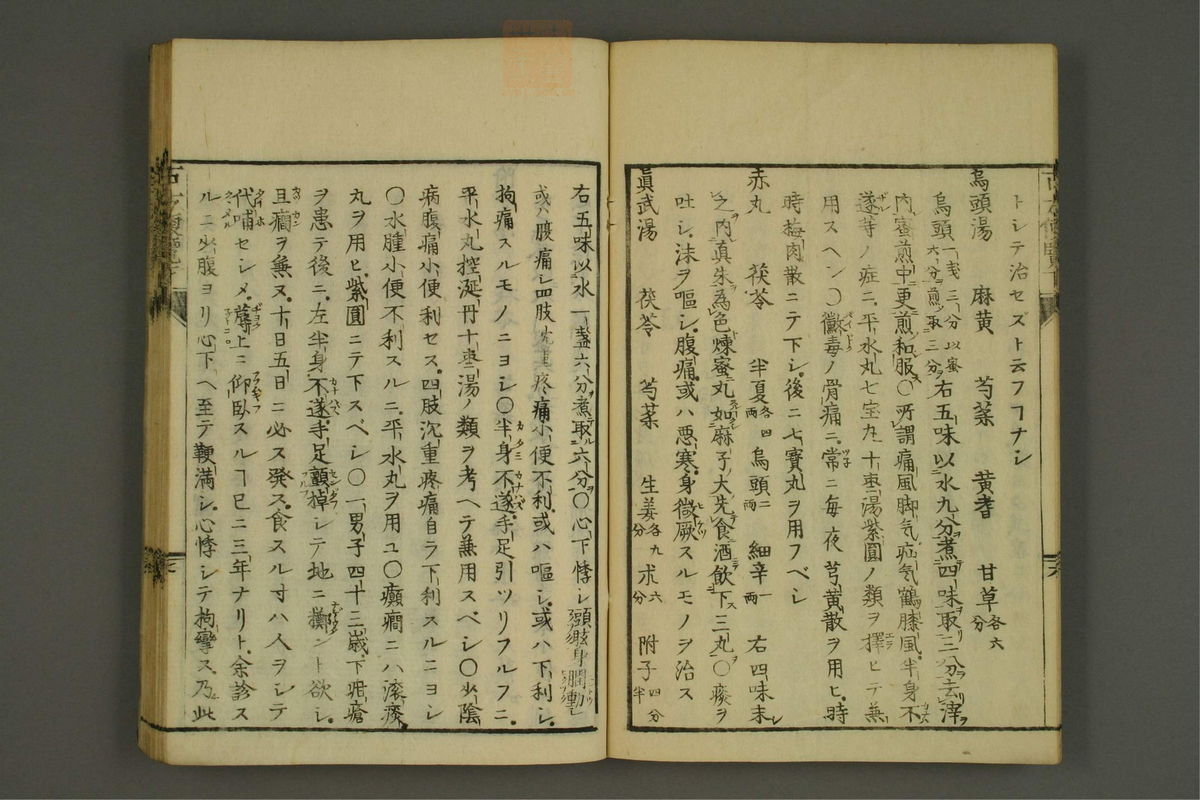 トシテ治セズト云フヿナシ
烏頭湯 麻黄 芍薬 黄耆 甘草各六分
烏頭 右五味以水九分煮四味取三分去滓
内蜜煎中更煎和服〇所謂痛風脚気疝気鶴膝風半身不
遂等ノ症ニ平水丸七宝丸十棗湯紫圓ノ類ヲ擇ヒテ兼
用スヘシ〇黴毒ノ骨痛ニ常ニ毎夜芎黄散ヲ用ヒ時
時梅肉散ニテ下シ後ニ七寶丸ヲ用フベシ
赤丸 茯苓 半夏各四両 烏頭二両 細辛一両 右四味末
之内真朱為色煉蜜丸如麻子大先食酒飲下三丸〇痰ヲ
吐シ沫ヲ嘔シ腹痛或ハ悪寒身微厥スルモノヲ治ス
眞武湯 茯苓 芍薬 生姜各九分 朮六分 附子四分半
右五味以水一盞六分煮取六分〇心下悸シ頭眩身瞤動シ
或ハ腹痛シ四肢沈重疼痛小便不利或ハ嘔シ或ハ下利シ
拘痛スルモノニヨシ〇半身不遂手足引ツリフルフニ
平水丸控涎丹十棗湯ノ類ヲ考ヘテ兼用スベシ〇少陰
病腹痛小便利セス四肢沉重疼痛自ラ下利スルニヨシ
〇水腫小便不利スルニ平水丸ヲ用ユ〇癲癇ニハ滚痰
丸ヲ用ヒ紫圓ニテ下スベシ〇一男子四十三歳下疳瘡
ヲ患テ後ニ左半身不遂手足顫掉シテ地ニ擲ント欲シ
且癇ヲ兼ヌ十日五日ニ必ス発ス食スル寸ハ人ヲシテ
代哺セシメ蓐上ニ仰臥スルヿ已ニ三年ナリト余診ス
ルニ少腹ヨリ心下ヘ至テ鞕満シ心悸シテ拘攣ス乃此